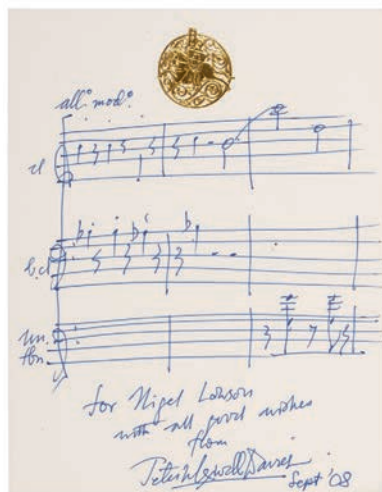 all° mod°
cl
b.cl
tbn
for Nigel Lawson
with all good wishes
from
Peter Maxwell Davies
Sept '08